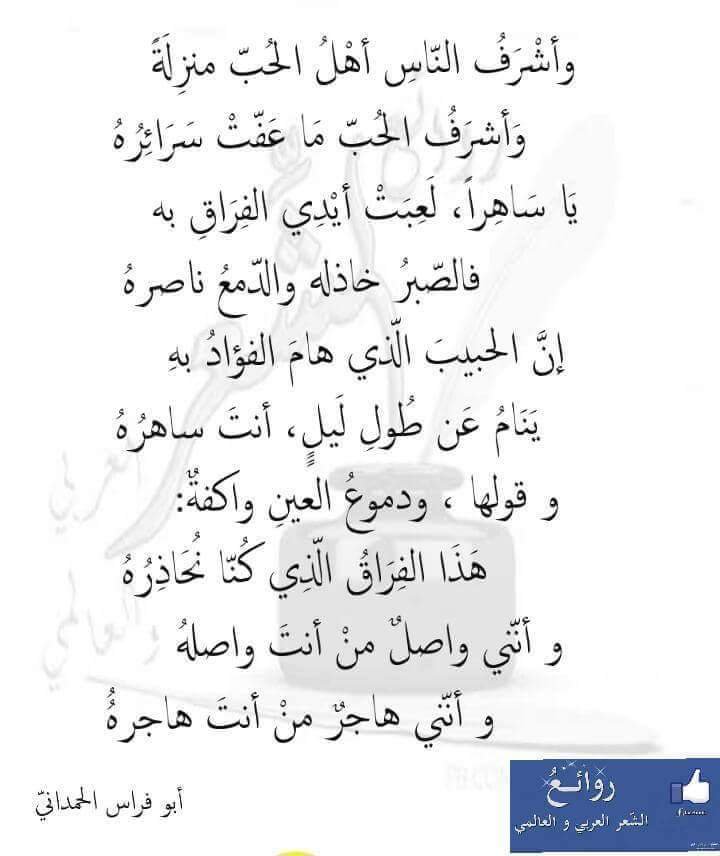 وأشْرَفُ النّاسِ أهْلُ الحُبّ منزِلَةً
وَأشرَفُ الحُبّ مَا عَفّتْ سَرَائِرُهُ
يَا سَاهِراً، لَعِبَتْ أيْدِي الفِرَاقِ به
فالصّبرُ خاذله والدّمعُ ناصرهُ
إنَّ الحبيبَ الّذي هامَ الفؤادُ بهِ
يَنَامُ عَن طُولِ لَيلٍ، أنتَ ساهرُهُ
و قولها ، ودموعُ العينِ واكفةٌ:
هَذَا الفِرَاقُ الّذِي كُنّا نُحَاذِرُهُ
و أنّني واصلٌ منْ أنتَ واصلهُ
و أنّني هاجرٌ منْ أنتَ هاجرهُُ
أبو فراس الحمدانيّ
روائعُ
الشّعر العربي و العالمي